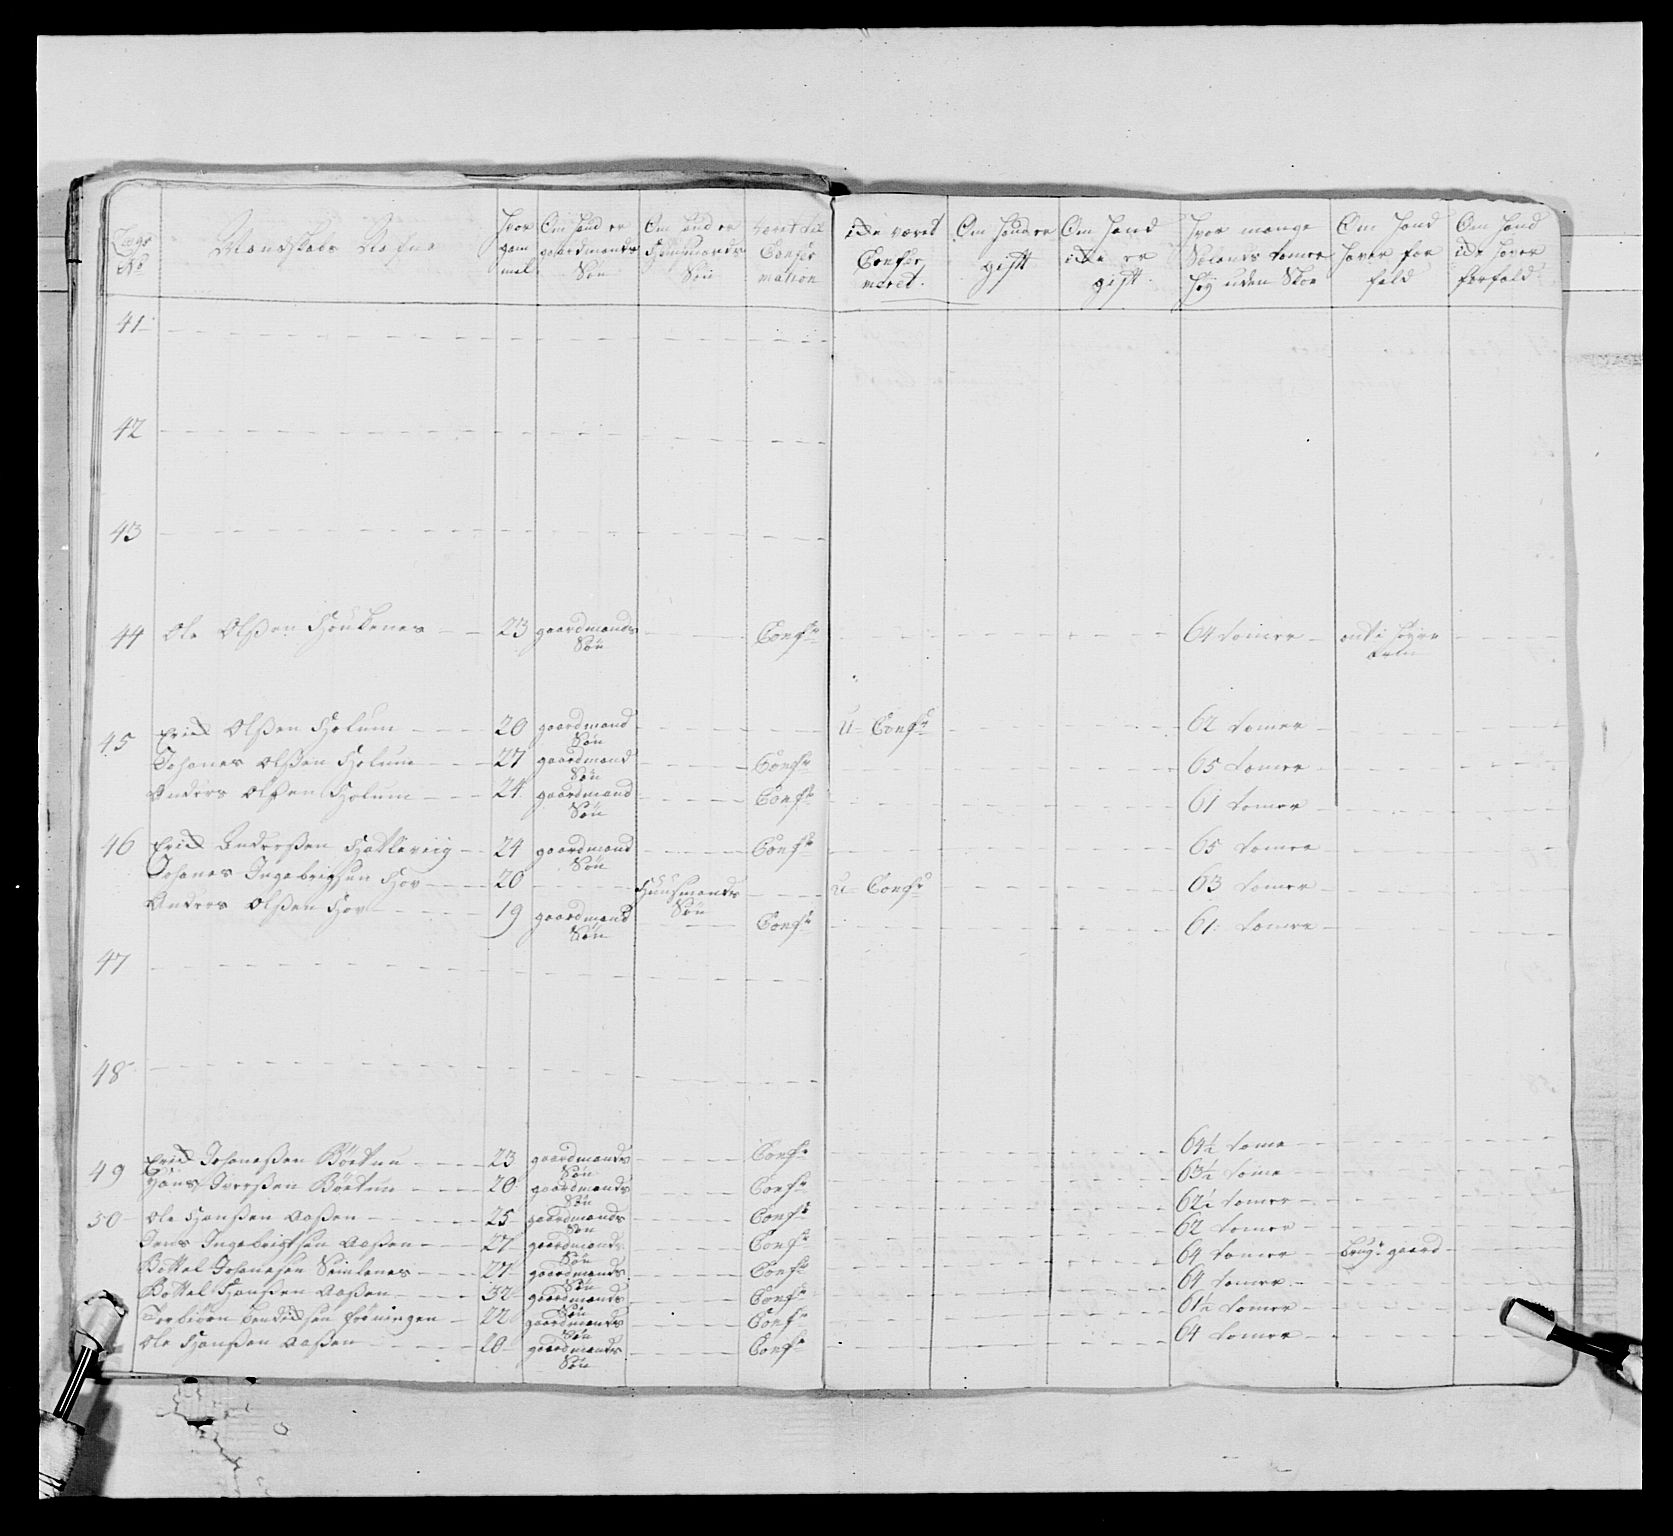 Lægs No | Mandskabs Nafne | hvor gam mel | Om hand er gaardmands Søn | Om hand er Huusmands Søn | været til Confir mation | icke været Confir, meret. | Om hand er gift | Om hand icke er gift | hvor mange Sælands tomer høy uden Skoe | Om hand haver for fald | Om hand icke haver forfald
41
42
43
44 Ole Olßen 23 gaardmands Søn Confr 64 tomer ont i høyre
45 Erick Olßen Holum 20 gaardmand Søn U- Confr 62 tomer
Johanes Olßen Holum 27 gaardmand Søn Confr 65 tomer
Anders Olßen Holum 24 gaardmand Søn Confr 61 tomer
46 Erick Anderßen Hatleviig 24 gaardmand Søn Confr 65 tomer
Johanes Ingebrigtsen Hov 20 Huusmands Søn U- Confr 63 tomer
Anders Olßen Hov 19 gaardmand Søn Confr 61 tomer
47
48
49 Erick Johanßen 23 gaardmands Søn Confr 64½ tome
Hans Iverßen 20 gaardmands Søn Confr 63½ tome
50 Ole Hanßen Aaßen 25 gaardmands Søn Confr 62½ tomer
Jens Ingebrigtsen Aaßen 27 gaardmands Søn Confr 62 tomer
Bottel Johansen 27 gaardmands Søn Confr 64 tomer brugr gaard
Bottel Hanßen Aaßen 32 gaardmands Søn Confr 64 tomer
Torbiørn Bendicksen 22 gaardmands Søn Confr 61½ tomer
Ole Hanßen Aaßen 20 gaardmands Søn Confr 64 tomer